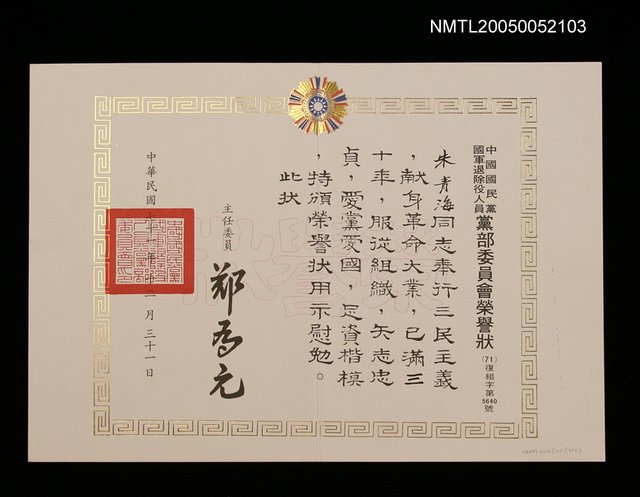 NMTL20050052103
中國國民黨
國軍退除役人員
黨部委員會榮譽狀
(71)復組字第5640號
朱青海同志奉行三民主義
，献身革命大業，已滿三
十年，服從組織，矢志忠
貞，愛黨愛國，足資楷模
，特頒榮譽狀用示慰勉。
此狀
主任委員
鄭為元
中華民國七十一年十二月三十一日
榮譽狀
NMTL20050052103